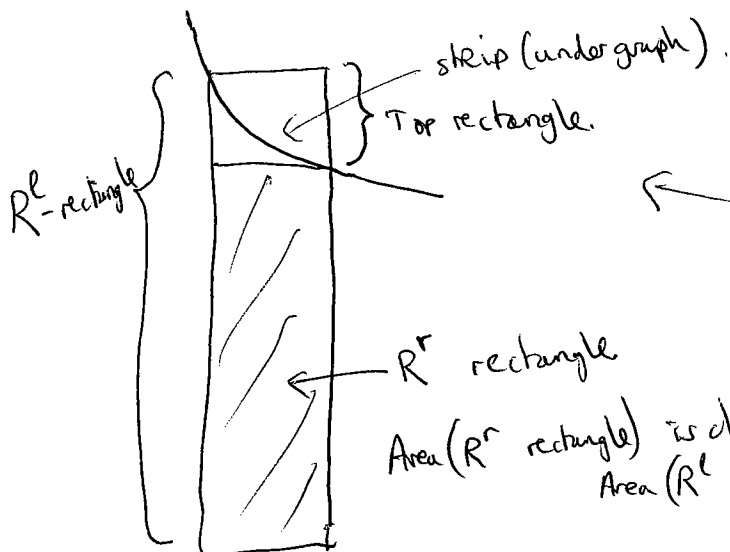 strip (under graph).
Top rectangle.
R^l - rectangle
R^r rectangle
Area (R^r rectangle) is
Area (R^l